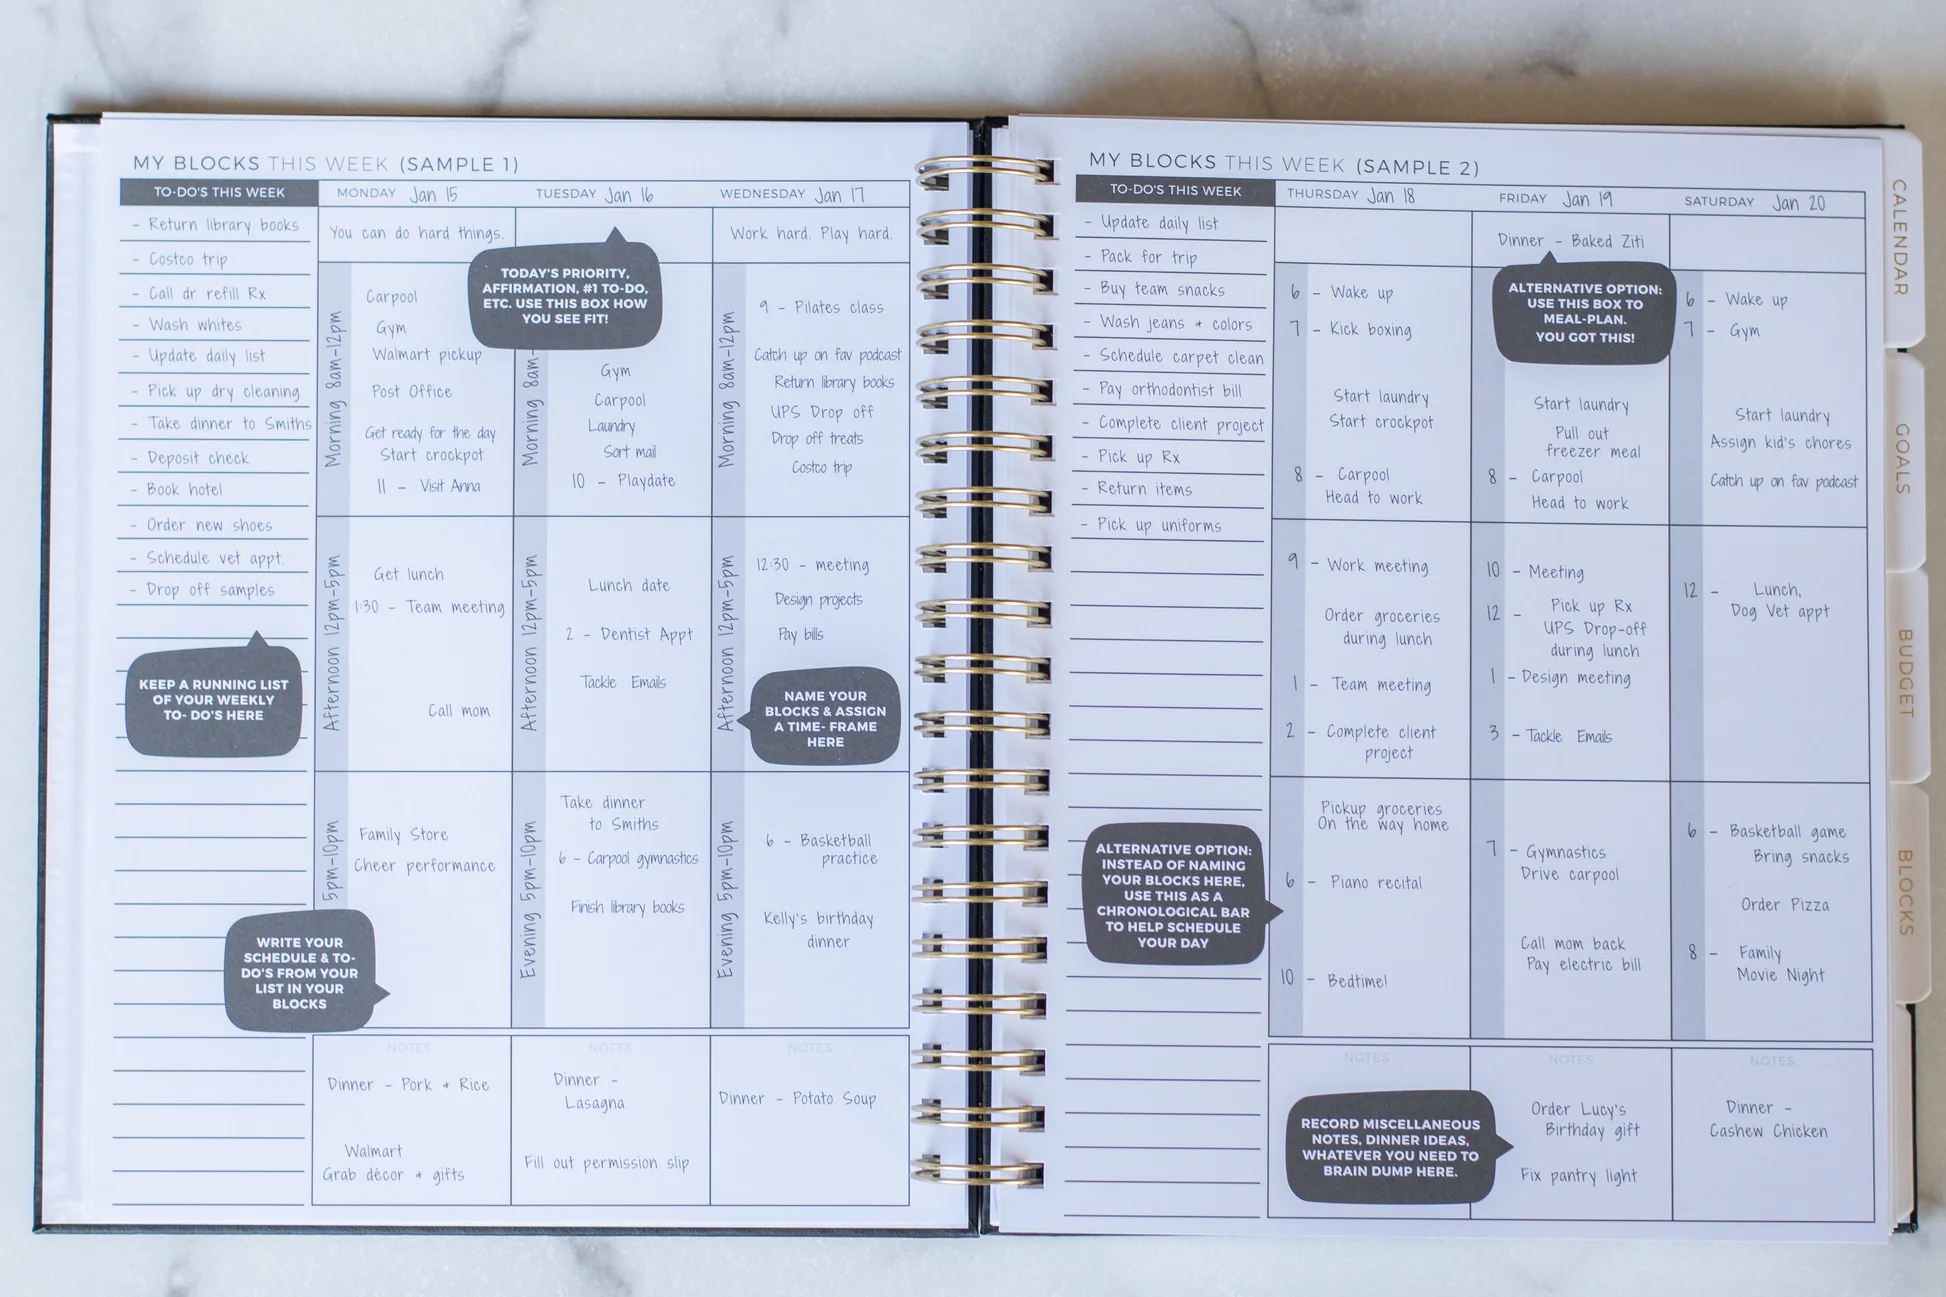 MY BLOCKS THIS WEEK (SAMPLE 1)
TO-DO'S THIS WEEK
- Return library books
- Costco trip
- Call dr refill Rx
- Wash whites
- Update daily list
- Pick up dry cleaning
- Take dinner to Smiths
- Deposit check
- Book hotel
- Order new shoes
- Schedule vet appt.
- Drop off samples
KEEP A RUNNING LIST
OF YOUR WEEKLY
TO- DO'S HERE
MONDAY Jan 15
You can do hard things.
Morning 8am-12pm
Carpool
Gym
Walmart pickup
Post Office
Get ready for the day
Start crockpot
11 - Visit Anna
Afternoon 12pm-5pm
Get lunch
1:30 - Team meeting
Call mom
5pm-10pm
Family Store
Cheer performance
WRITE YOUR
SCHEDULE & TO-
DO'S FROM YOUR
LIST IN YOUR
BLOCKS
NOTES
Dinner - Pork + Rice
Walmart
Grab décor + gifts
TUESDAY Jan 16
TODAY'S PRIORITY,
AFFIRMATION, #1 TO-DO,
ETC. USE THIS BOX HOW
YOU SEE FIT!
Morning 8am-
Gym
Carpool
Laundry
Sort mail
10 - Playdate
Afternoon 12pm-5pm
Lunch date
2 - Dentist Appt
Tackle Emails
Evening 5pm-10pm
Take dinner
to Smiths
6 - Carpool gymnastics
Finish library books
NOTES
Dinner -
Lasagna
Fill out permission slip
WEDNESDAY Jan 17
Work hard. Play hard.
Morning 8am-12pm
9 - Pilates class
Catch up on fav podcast
Return library books
UPS Drop off
Drop off treats
Costco trip
Afternoon 12pm-5pm
12:30 - meeting
Design projects
Pay bills
NAME YOUR
BLOCKS & ASSIGN
A TIME- FRAME
HERE
Evening 5pm-10pm
6 - Basketball
practice
Kelly's birthday
dinner
NOTES
Dinner - Potato Soup
MY BLOCKS THIS WEEK (SAMPLE 2)
TO-DO'S THIS WEEK
- Update daily list
- Pack for trip
- Buy team snacks
- Wash jeans + colors
- Schedule carpet clean
- Pay orthodontist bill
- Complete client project
- Pick up Rx
- Return items
- Pick up uniforms
ALTERNATIVE OPTION:
INSTEAD OF NAMING
YOUR BLOCKS HERE,
USE THIS AS A
CHRONOLOGICAL BAR
TO HELP SCHEDULE
YOUR DAY
THURSDAY Jan 18
6 - Wake up
7 - Kick boxing
Start laundry
Start crockpot
8 - Carpool
Head to work
9 - Work meeting
Order groceries
during lunch
1 - Team meeting
2 - Complete client
project
Pickup groceries
On the way home
6 - Piano recital
10 - Bedtime!
NOTES
RECORD MISCELLANEOUS
NOTES, DINNER IDEAS,
WHATEVER YOU NEED TO
BRAIN DUMP HERE.
FRIDAY Jan 19
Dinner - Baked Ziti
ALTERNATIVE OPTION:
USE THIS BOX TO
MEAL-PLAN.
YOU GOT THIS!
Start laundry
Pull out
freezer meal
8 - Carpool
Head to work
10 - Meeting
12 - Pick up Rx
UPS Drop-off
during lunch
1 - Design meeting
3 - Tackle Emails
7 - Gymnastics
Drive carpool
Call mom back
Pay electric bill
NOTES
Order Lucy's
Birthday gift
Fix pantry light
SATURDAY Jan 20
6 - Wake up
7 - Gym
Start laundry
Assign kid's chores
Catch up on fav podcast
12 - Lunch,
Dog Vet appt
6 - Basketball game
Bring snacks
Order Pizza
8 - Family
Movie Night
NOTES
Dinner -
Cashew Chicken
CALENDAR
GOALS
BUDGET
BLOCKS